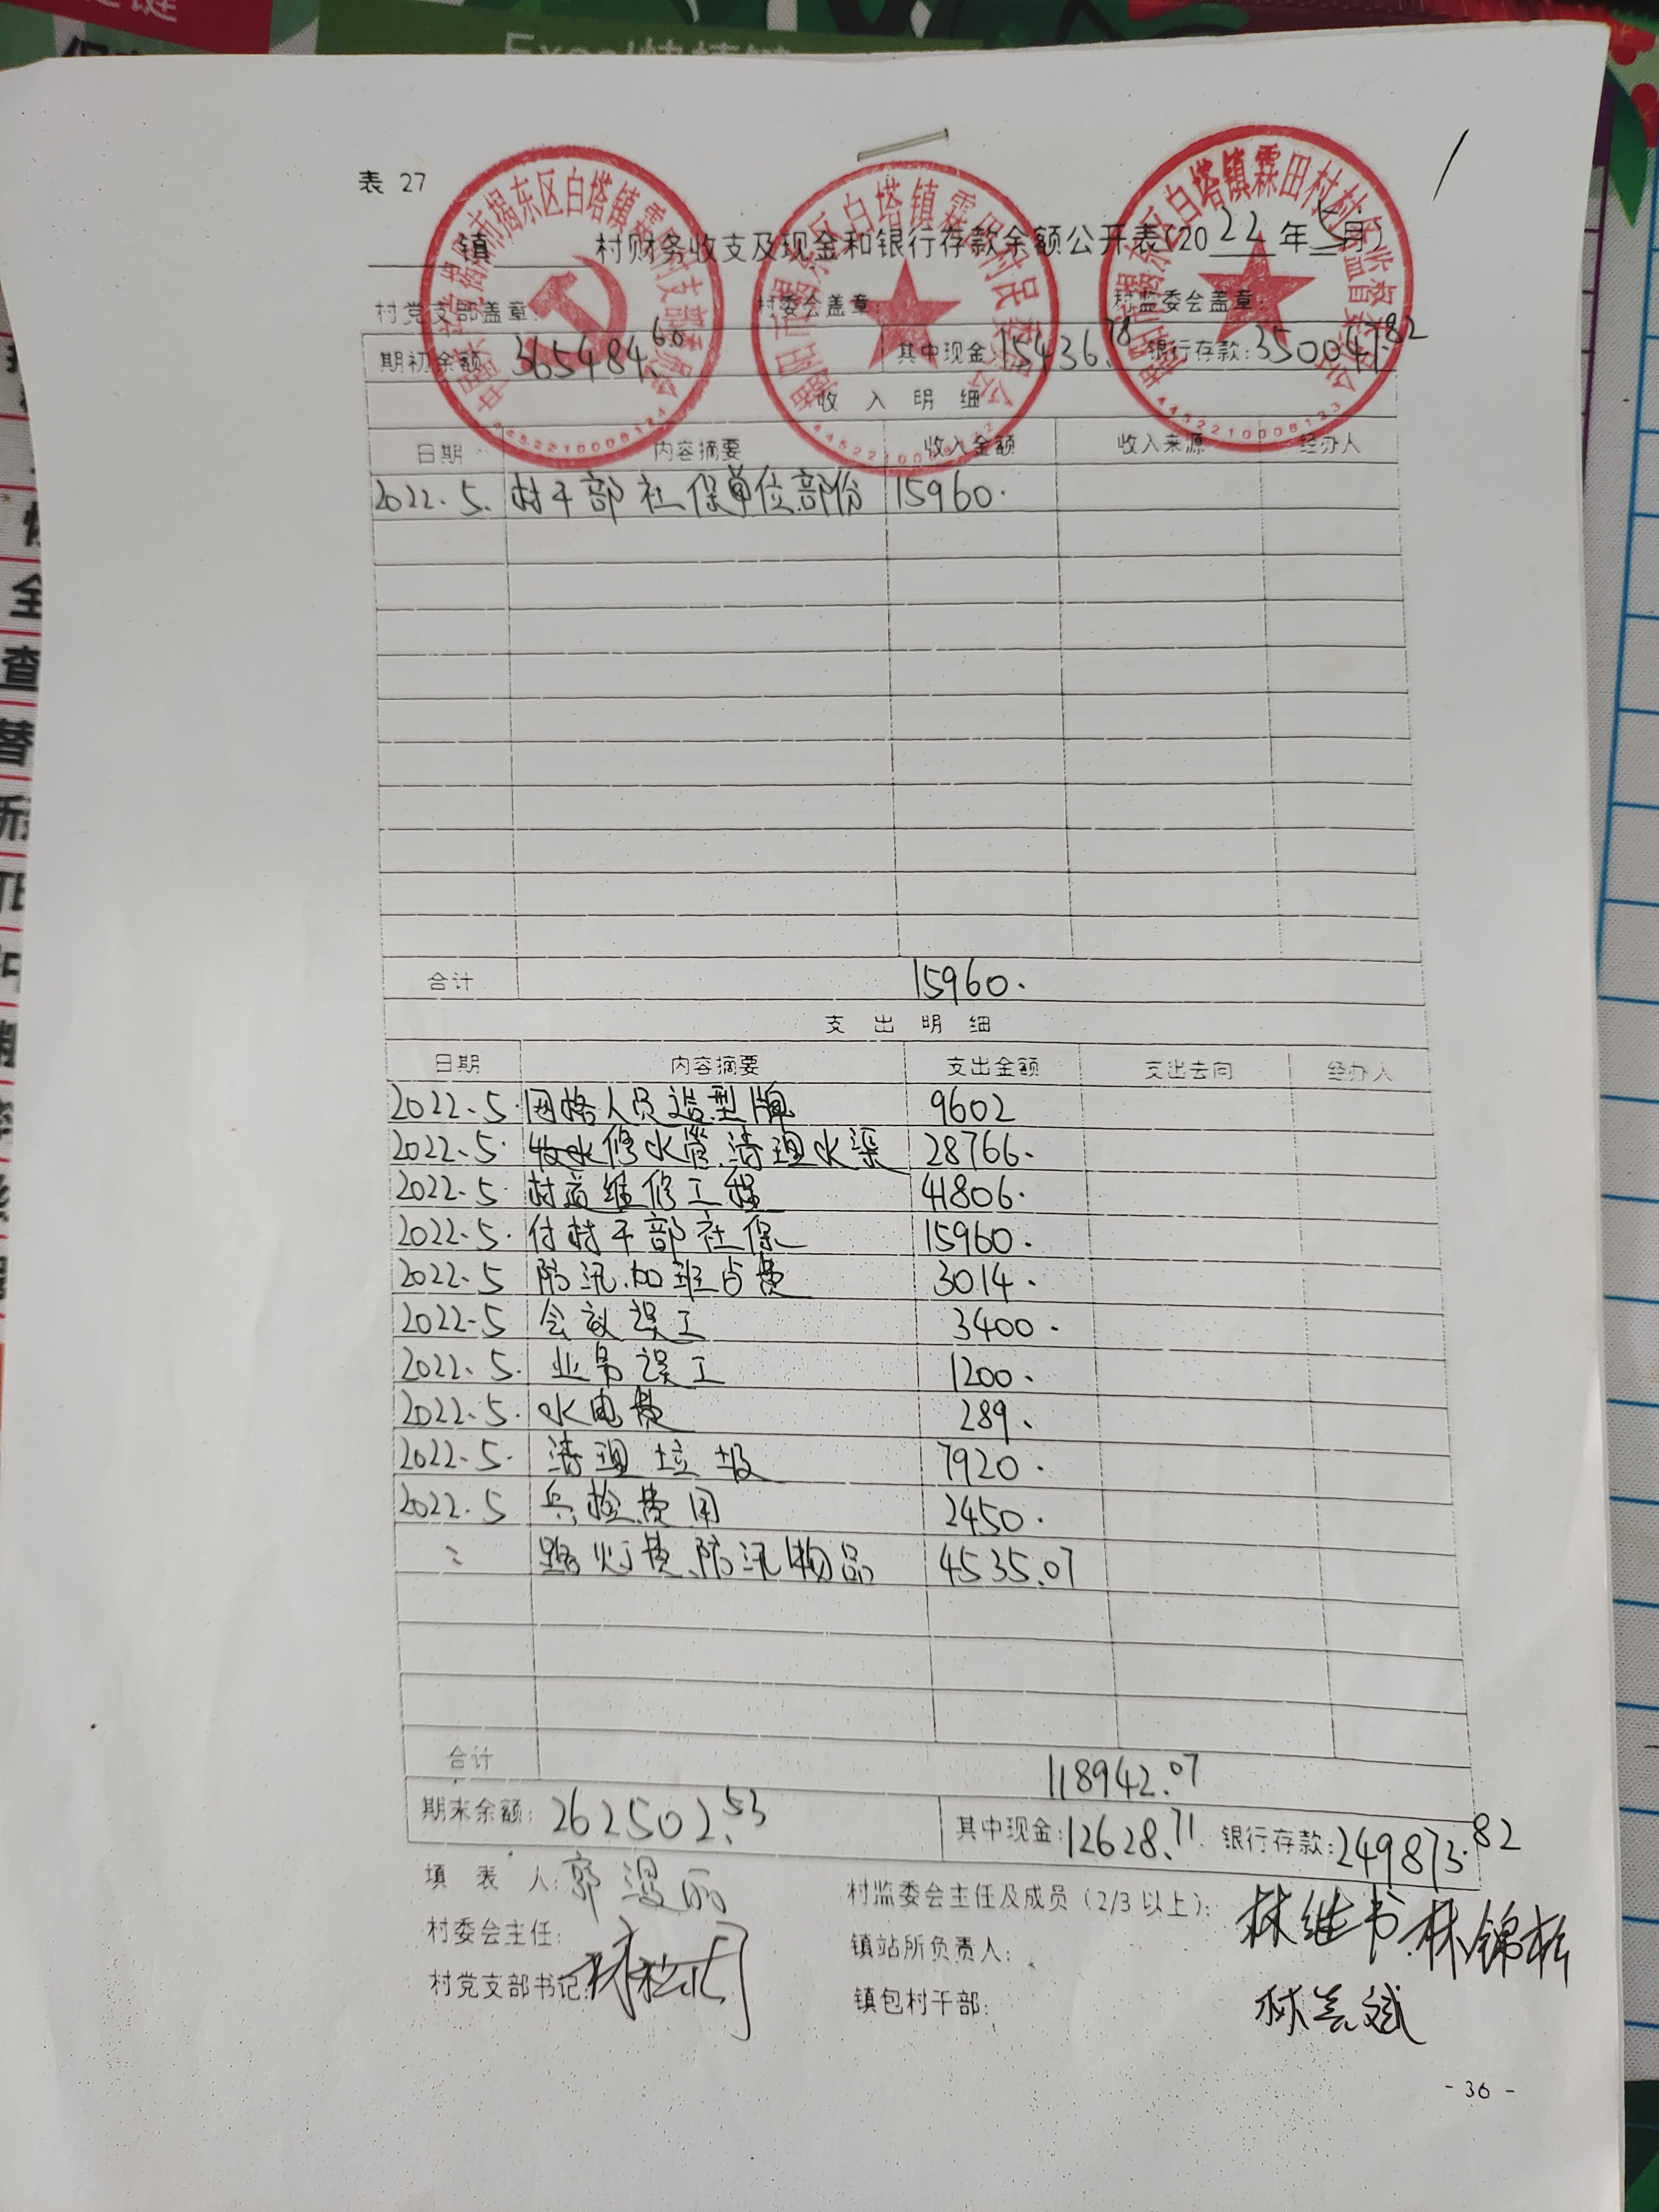 表 27
镇 村财务收支及现金和银行存款余额公开表(2022年5月)
村党支部盖章: 村委会盖章: 村监委会盖章:
期初余额: 365484.60 其中现金:15436.78 银行存款:350047.82
收 入 明 细
日期 内容摘要 收入金额 收入来源 经办人
2022.5. 村干部社保单位部份 15960.
合计 15960.
支 出 明 细
日期 内容摘要 支出金额 支出去向 经办人
2022.5. 网格人员造型牌 9602
2022.5. 放水修水管.清理水渠 28766.
2022.5 村道维修工程 41806.
2022.5. 付村干部社保 15960.
2022.5 防汛.加班占费 3014.
2022.5 会议误工 3400.
2022.5. 业务误工 1200.
2022.5. 水电费 289.
2022.5. 清理垃圾 7920.
2022.5 兵检费用 2450.
路灯费、防汛物品 4535.07
合计 118942.07
期末余额: 262502.53 其中现金:12628.71 银行存款:249873.82
填 表 人: 郭 村监委会主任及成员(2/3以上): 林继书 林锦松
村委会主任: 镇站所负责人:
村党支部书记: 镇包村干部:
- 36 -